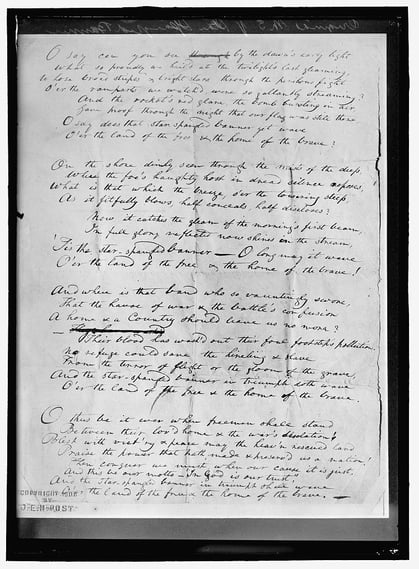 Original M.S. of the Star Spangled Banner
O say can you see through by the dawn's early light
What so proudly we hail'd at the twilight's last gleaming,
Whose broad stripes & bright stars through the perilous fight
O'er the ramparts we watch'd, were so gallantly streaming?
And the rocket's red glare, the bomb bursting in air,
Gave proof through the night that our flag was still there
O say does that star-spangled banner yet wave
O'er the land of the free & the home of the brave?
On the shore dimly seen through the mists of the deep,
Where the foe's haughty host in dread silence reposes,
What is that which the breeze, o'er the towering steep,
As it fitfully blows, half conceals half discloses?
Now it catches the gleam of the morning's first beam,
In full glory reflected now shines in the stream,
'Tis the star-spangled banner — O long may it wave
O'er the land of the free & the home of the brave!
And where is that band who so vauntingly swore,
That the havoc of war & the battle's confusion
A home & a Country should leave us no more?
— Their blood has wash'd out their foul footsteps pollution
No refuge could save the hireling & slave
From the terror of flight or the gloom of the grave,
And the star-spangled banner in triumph doth wave
O'er the land of the free & the home of the brave.
O thus be it ever when freemen shall stand
Between their lov'd home & the war's desolation!
Blest with vict'ry & peace may the heav'n rescued land
Praise the power that hath made & preserv'd us a nation!
Then conquer we must, when our cause it is just,
And this be our motto - "In God is our trust,"
And the star-spangled banner in triumph shall wave
O'er the land of the free & the home of the brave. —
COPYRIGHT 1907
BY
J.E.H. POST.